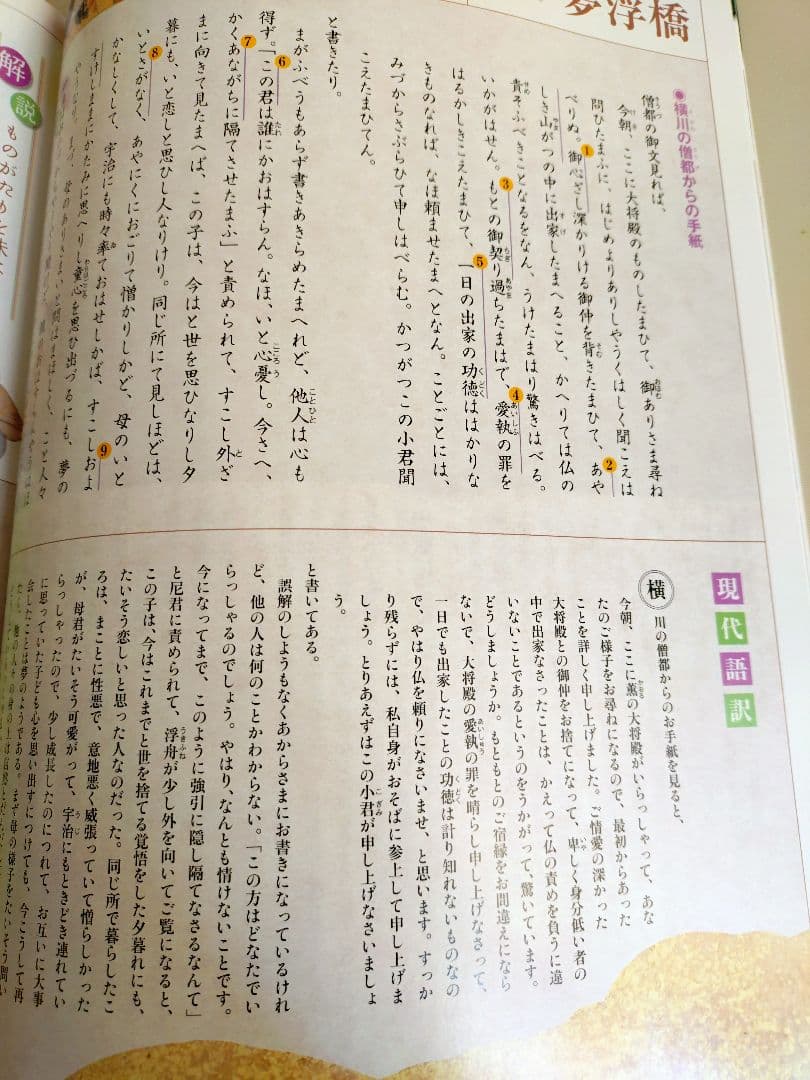 夢浮橋
●横川の僧都からの手紙
僧都の御文見れば、
今朝、ここに大将殿のものしたまひて、御ありさま尋ね
問ひたまふに、はじめよりありしやうくはしく聞こえは
べりぬ。御心ざし深かりける御仲を背きたまひて、あや
しき山がつの中に出家したまへること、かへりては仏の
責そふべきことなるをなん、うけたまはり驚きはべる。
いかがはせん。もとの御契り過ちたまはで、愛執の罪を
はるかしきこえたまひて、一日の出家の功徳ははかりな
きものなれば、なほ頼ませたまへとなん。ことごとには、
みづからさぶらひて申しはべらむ。かつがつこの小君聞
こえたまひてん。
と書きたり。
まがふべうもあらず書きあきらめたまへれど、他人は心も
得ず。「この君は誰にかおはすらん。なほ、いと心憂し。今さへ、
かくあながちに隔てさせたまふ」と責められて、すこし外ざ
まに向きて見たまへば、この子は、今はと世を思ひなりし夕
暮にも、いと恋しと思ひし人なりけり。同じ所にて見しほどは、
いとさがなく、あやにくにおごりて憎かりしかど、母のいと
かなしくして、宇治にも時々率ておはせしかば、すこしおよ
すけしままにかたみに思へりし童心を思ひ出づるにも、夢の
やうなり。まづ、母のありさまいと問はまほしく、こと人々
現代語訳
横川の僧都からのお手紙を見ると、
今朝、ここに薫の大将殿がいらっしゃって、あな
たのご様子をお尋ねになるので、最初からあった
ことを詳しく申し上げました。ご情愛の深かった
大将殿との御仲をお捨てになって、卑しく身分低い者の
中で出家なさったことは、かえって仏の責めを負うに違
いないことであるというのをうかがって、驚いています。
どうしましょうか。もともとのご宿縁をお間違えになら
ないで、大将殿の愛執の罪を晴らし申し上げなさって、
一日でも出家したことの功徳は計り知れないものなの
で、やはり仏を頼りになさいませ、と思います。すっか
り残らずには、私自身がおそばに参上して申し上げま
しょう。とりあえずはこの小君が申し上げなさいましょ
う。
と書いてある。
誤解のしようもなくあからさまにお書きになっているけれ
ど、他の人は何のことかわからない。「この方はどなたでい
らっしゃるのでしょう。やはり、なんとも情けないことです。
今になってまで、このように強引に隠し隔てなさるなんて」
と尼君に責められて、浮舟が少し外を向いてご覧になると、
この子は、今はこれまでと世を捨てる覚悟をした夕暮れにも、
たいそう恋しいと思った人なのだった。同じ所で暮らしたこ
ろは、まことに性悪で、意地悪く威張っていて憎らしかった
が、母君がたいそう可愛がって、宇治にもときどき連れてい
らっしゃったので、少し成長したのにつれて、お互いに大事
に思っていた子ども心を思い出すにつけても、今こうして再
会したことは夢のようである。まず母の様子をたいそう問い
解説
ものがたりを味